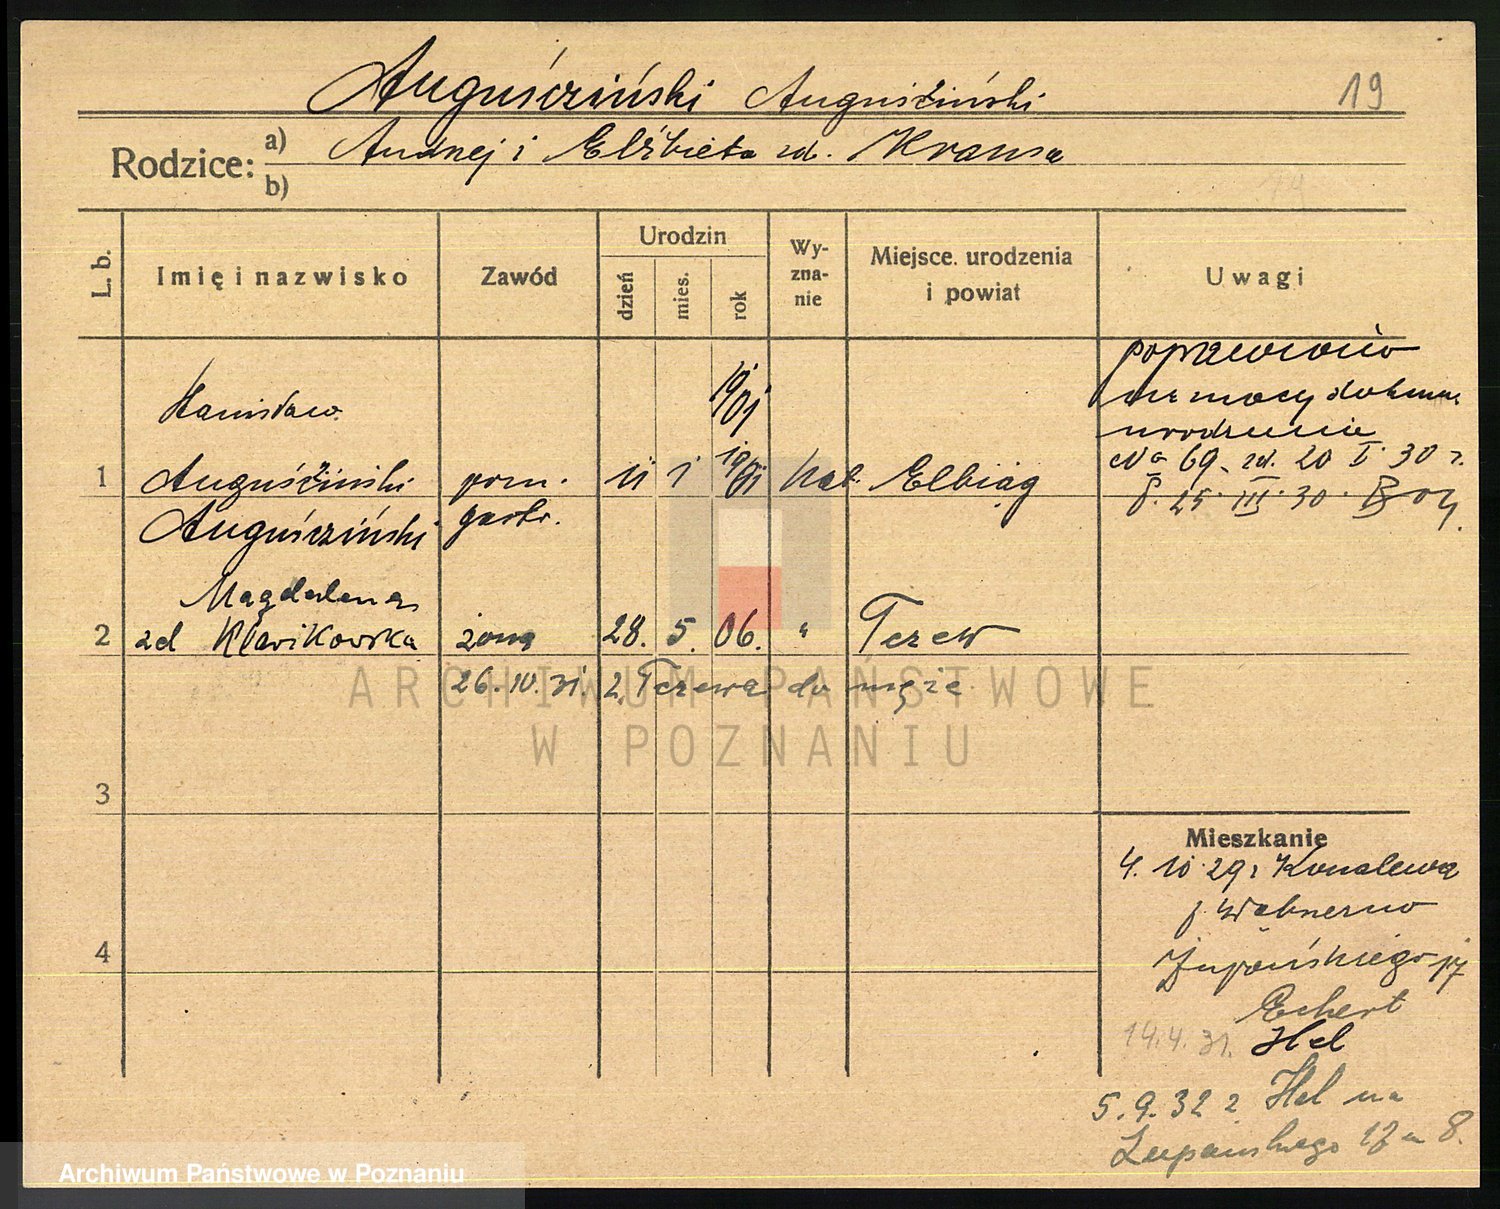 Auguścziński Auguściński 19
Rodzice: a) Andrzej i Elżbieta zd. Krausa
b)
L. b. Imię i nazwisko Zawód Urodzin dzień mies. rok Wy-zna-nie Miejsce urodzenia i powiat Uwagi
poprawiono
na mocy dokum.
urodzenia
No 69 zd. 20 I. 30 r.
P. 25. III. 30.
Stanisław 19/01
1 Auguściński pom. 11 1 19/01 kat. Elbiąg
Auguścziński gastr.
Magdalena
2 zd żona 28. 5. 06. " Tczew
26.10.31. z Tczewa do męża
3
Mieszkanie
4. 10 29 z Konalewa
4
Żupańskiego 17
Echert
14.4.31. Hel
5. 9. 32 z Hel na
Żupańskiego 17 m 8.
ARCHIWUM PAŃSTWOWE
W POZNANIU
Archiwum Państwowe w Poznaniu